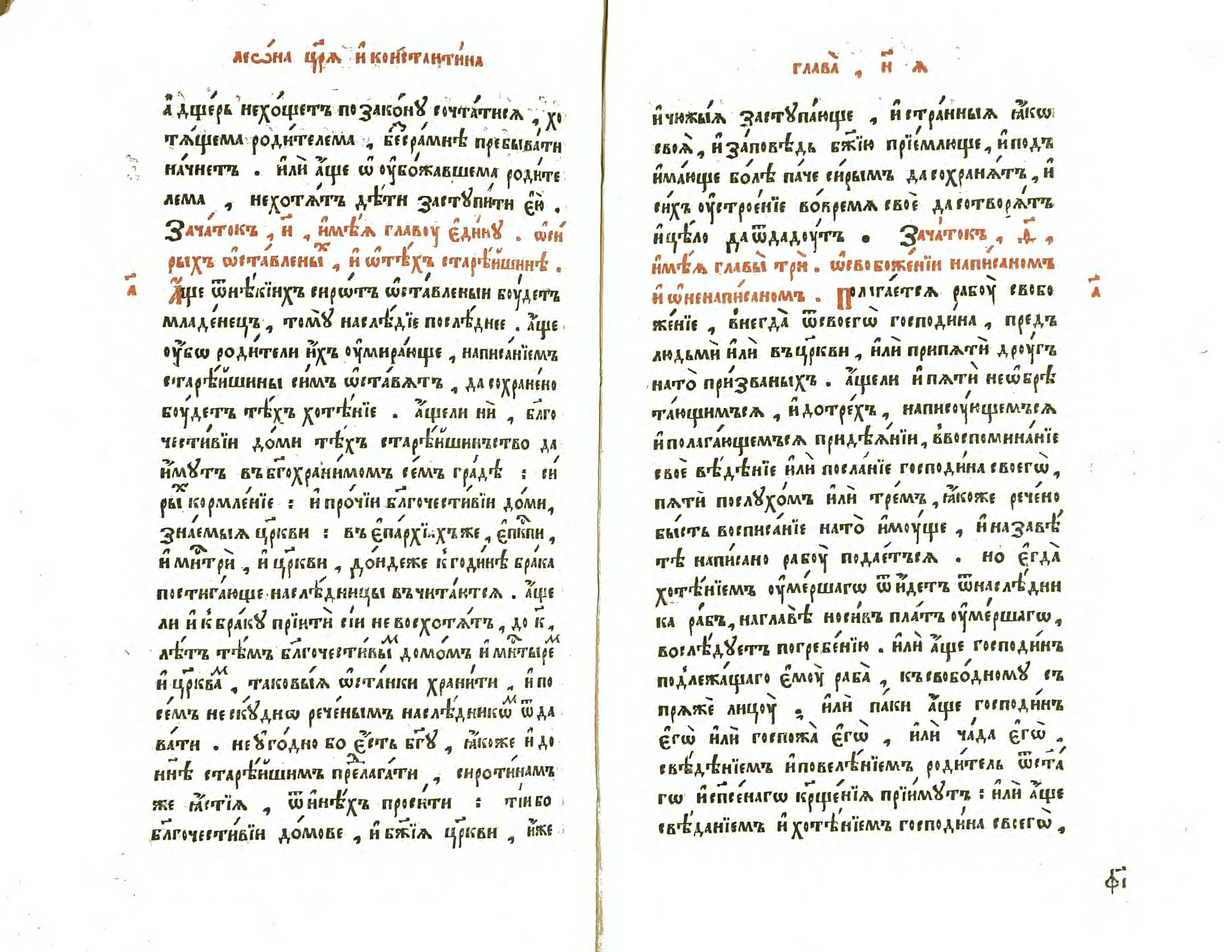 леѡ́на цр҃ѧ и҆ константи́на
а҆ дщерь нехо́щетъ по зако́ну сочта́тисѧ , хо
тѧ́щема роди́телема , бе́сра́мнѣ пребыва́ти
на́чнетъ . и҆лѝ а҆́ще ѿ оу҆бо́жавшема роди́те
лема , нехотѧ́тъ дѣ́ти заступи́ти е҆ю̀ .
Зача́токъ , и҃ , и҆мѣ́ѧ главоу̀ е҆ди́ну . ѡ҆си́
рыхъ ѡ҆ста́влены́х , и҆ ѡ҆тѣ́хъ старѣ́йшинѣ .
а҃
А҆́ще ѿнѣ́кїихъ сиро́тъ ѡ҆ста́вленыи боу́детъ
младе́нецъ , томꙋ̀ наслѣ́дїе послѣ́днее . а҆́ще
оу҆́бѡ роди́тели и҆́хъ оу҆мира́юще , написа́нїемъ
старѣ́йшины си́мъ ѡ҆ста́вѧтъ , да сохране́но
боу́детъ тѣ́хъ хотѣ́нїе . а҆́щели нѝ , бл҃го
чести́вїи до́ми тѣ́хъ старѣ́йшиньство да
и҆́мутъ въ бг҃охрани́момъ се́мъ гра́дѣ : си́
ры́х кормле́нїе : и҆ про́чїи бл҃гочести́вїи до́ми ,
зна́емыѧ цр҃кви : въ е҆па́рхїѧхъ же , е҆пк҃пи ,
и҆ мн҃трѝ , и҆ цр҃кви , до́ндеже к годи́нѣ бра́ка
постига́юще наслѣ́дницы въчита́ютсѧ . а҆́ще
ли и҆ к бра́ку прїитѝ сїѝ не восхотѧ́тъ , до к҃ ,
лѣ́тъ тѣ́мъ бл҃гочести́вым домо́мъ и҆ мн҃тыре́м
и҆ цр҃ква́м , таковы́ѧ ѡ҆ста́нки храни́ти , и҆ по
се́мъ не ску́днѡ рече́нымъ наслѣ́дникѡм ѿда
ва́ти . не у҆го́дно бо е҆́сть бг҃у , ꙗ҆́коже и҆ до
нн҃ѣ старѣ́йшимъ прелага́ти , сироти́намъ
же ꙗ҆́стїѧ , ѿ и҆нѣ́хъ проси́ти : ті́и бо
бл҃гочести́вїи до́мове , и҆ бж҃їѧ цр҃кви , и҆́же
глава̀ , н҃ ѧ
и҆ чюжи́ѧ заступа́юще , и҆ стра́нныѧ ꙗ҆́кѡ
своѧ̀ , и҆ за́повѣдь бж҃їю прїе́млюще , и҆ подъ
и҆ма́юще бо́лѣ па́че си́рымъ да сохранѧ́тъ , и҆
си́хъ оу҆строе́нїе во́время своѐ да сотворѧ́тъ
и҆ цѣ́ло да ѿдадоу́тъ . Зача́токъ , д҃ ,
и҆мѣ́ѧ главы̀ трѝ . ѡ҆свобоже́нїи напи́саномъ
и҆ ѡ҆ненапи́саномъ . Полага́етсѧ рабоу̀ свобо
а҃
же́нїе , внегда̀ ѿсвоегѡ̀ господи́на , пре́дъ
людьмѝ и҆лѝ въ цр҃кви , и҆лѝ припѧтѝ дроу́гъ
на то̀ при́званыхъ . а҆́щели и҆ пѧтѝ не ѡ҆брѣ
та́ющимъсѧ , и҆ до тре́хъ , написоу́ющемъсѧ
и҆ полага́ющемъсѧ при дѣѧ́нїи , в воспомина́нїе
своѐ вѣ́дѣнїе и҆лѝ посла́нїе господи́на своегѡ̀ ,
пѧтѝ послухо́мъ и҆лѝ тре́мъ , ꙗ҆́коже рече́но
бы́сть восписа́нїе на то̀ и҆мо́уще , и҆ на завѣ́
тѣ напи́сано рабоу̀ подае́тъсѧ . но е҆гда̀
хотѣ́нїемъ оу҆ме́ршагѡ ѿи́детъ ѿнаслѣ́дни
ка ра́бъ , на главѣ̀ носи́въ пла́тъ оу҆ме́ршагѡ ,
вослѣ́дуетъ погребе́нїю . и҆лѝ а҆́ще господи́нъ
подлежа́щаго е҆моу̀ раба̀ , къ свобо́дному съ
прѧжѐ лицоу̀ , и҆лѝ па́ки а҆́ще господи́нъ
е҆гѡ̀ и҆лѝ госпожа̀ е҆гѡ̀ , и҆лѝ ча́да е҆гѡ̀ ,
свѣ́дѣнїемъ и҆ повелѣ́нїемъ роди́тель ѿста́
гѡ и҆ сп҃се́нагѡ кр҃ще́нїѧ прїи́мутъ : и҆лѝ а҆́ще
свѣ́данїемъ и҆ хотѣ́нїемъ господи́на своегѡ̀ ,
ф҃і